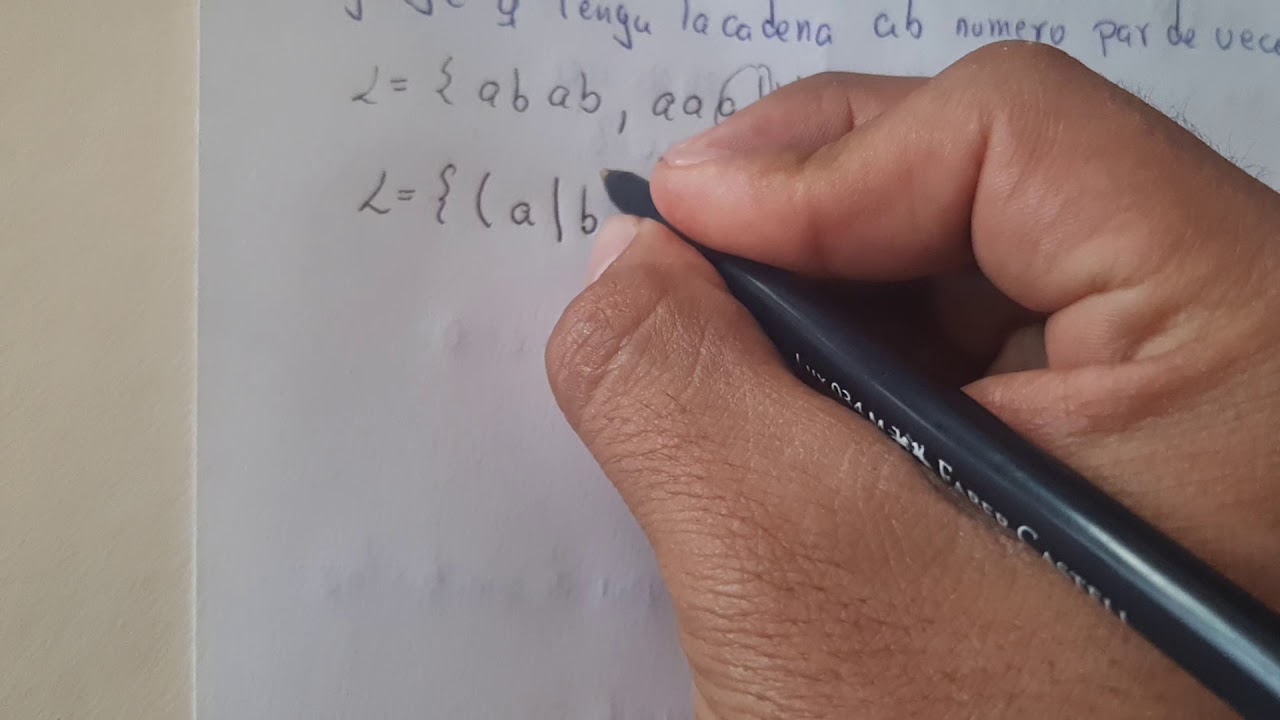 y tenga la cadena ab numero par de vece
L = { ab ab, aab
L = { ( a | b
FABER CASTELL